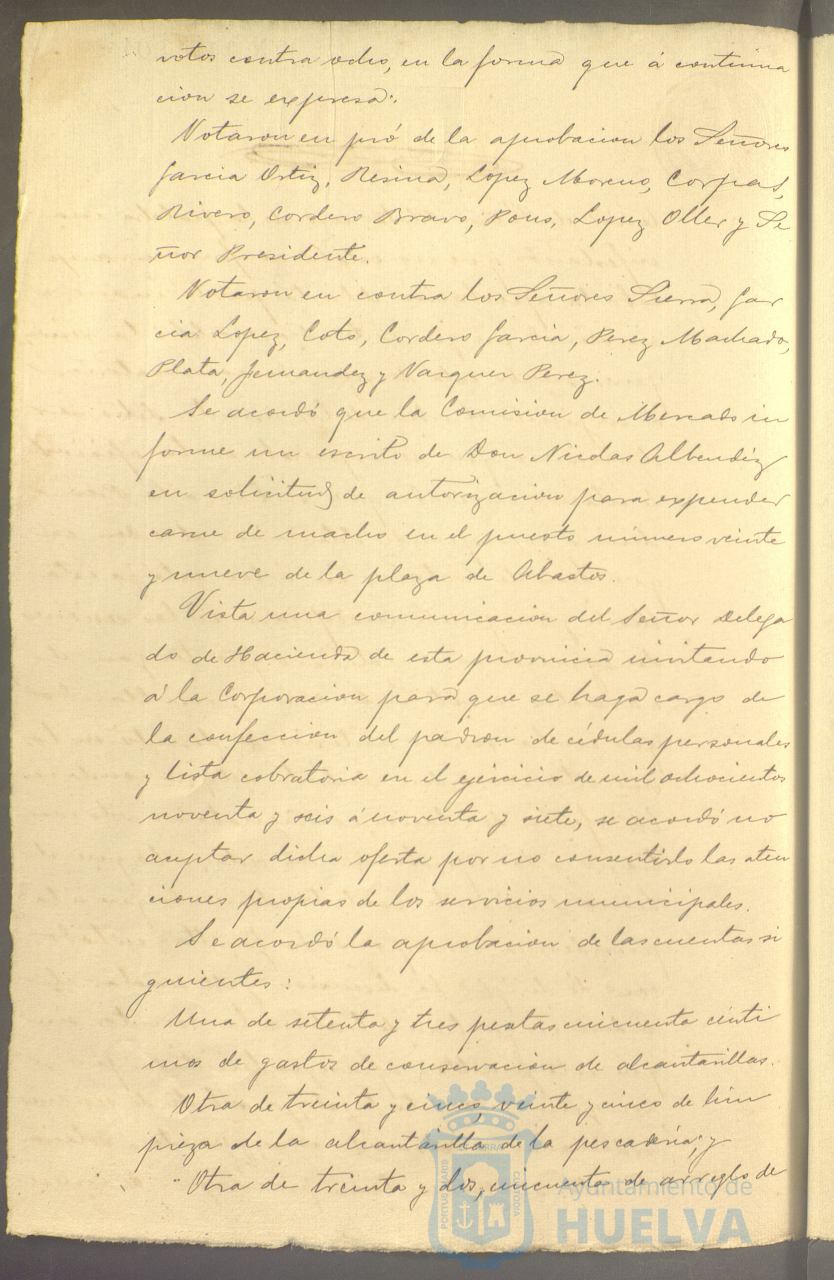 votos contra ocho, en la forma que á continua
cion se expresa:
Votaron en pró de la aprobacion los Señores
Garcia Ortiz, Resina, López Moreno, Corpas,
Rivero, Cordero Bravo, Pons, Lopez Oller y Se
ñor Presidente.
Votaron en contra los Señores Sierra, Gar
cia Lopez, Coto, Cordero Garcia, Perez Machado,
Plata, Fernandez y Vazquez Perez.
Se acordó que la Comision de Mercado in
forme un escrito de Don Nicolas Albendiz
en solicitud de autorizacion para expender
carne de macho en el puesto número veinte
y nueve de la plaza de Abastos.
Vista una comunicacion del Señor Delega
do de Hacienda de esta provincia invitando
á la Corporacion para que se haga cargo de
la confeccion del padron de cédulas personales
y lista cobratoria en el ejercicio de mil ochocientos
noventa y seis á noventa y siete, se acordó no
aceptar dicha oferta por no consentirlo las aten
ciones propias de los servicios municipales.
Se acordó la aprobacion de las cuentas si
guientes:
Una de setenta y tres pesetas cincuenta cénti
mos de gastos de conservacion de alcantarillas.
Otra de treinta y cinco, veinte y cinco de lim
pieza de la alcantarilla de la pescadería; y
Otra de treinta y dos, cincuenta de arreglo de
Ayuntamiento de
HUELVA